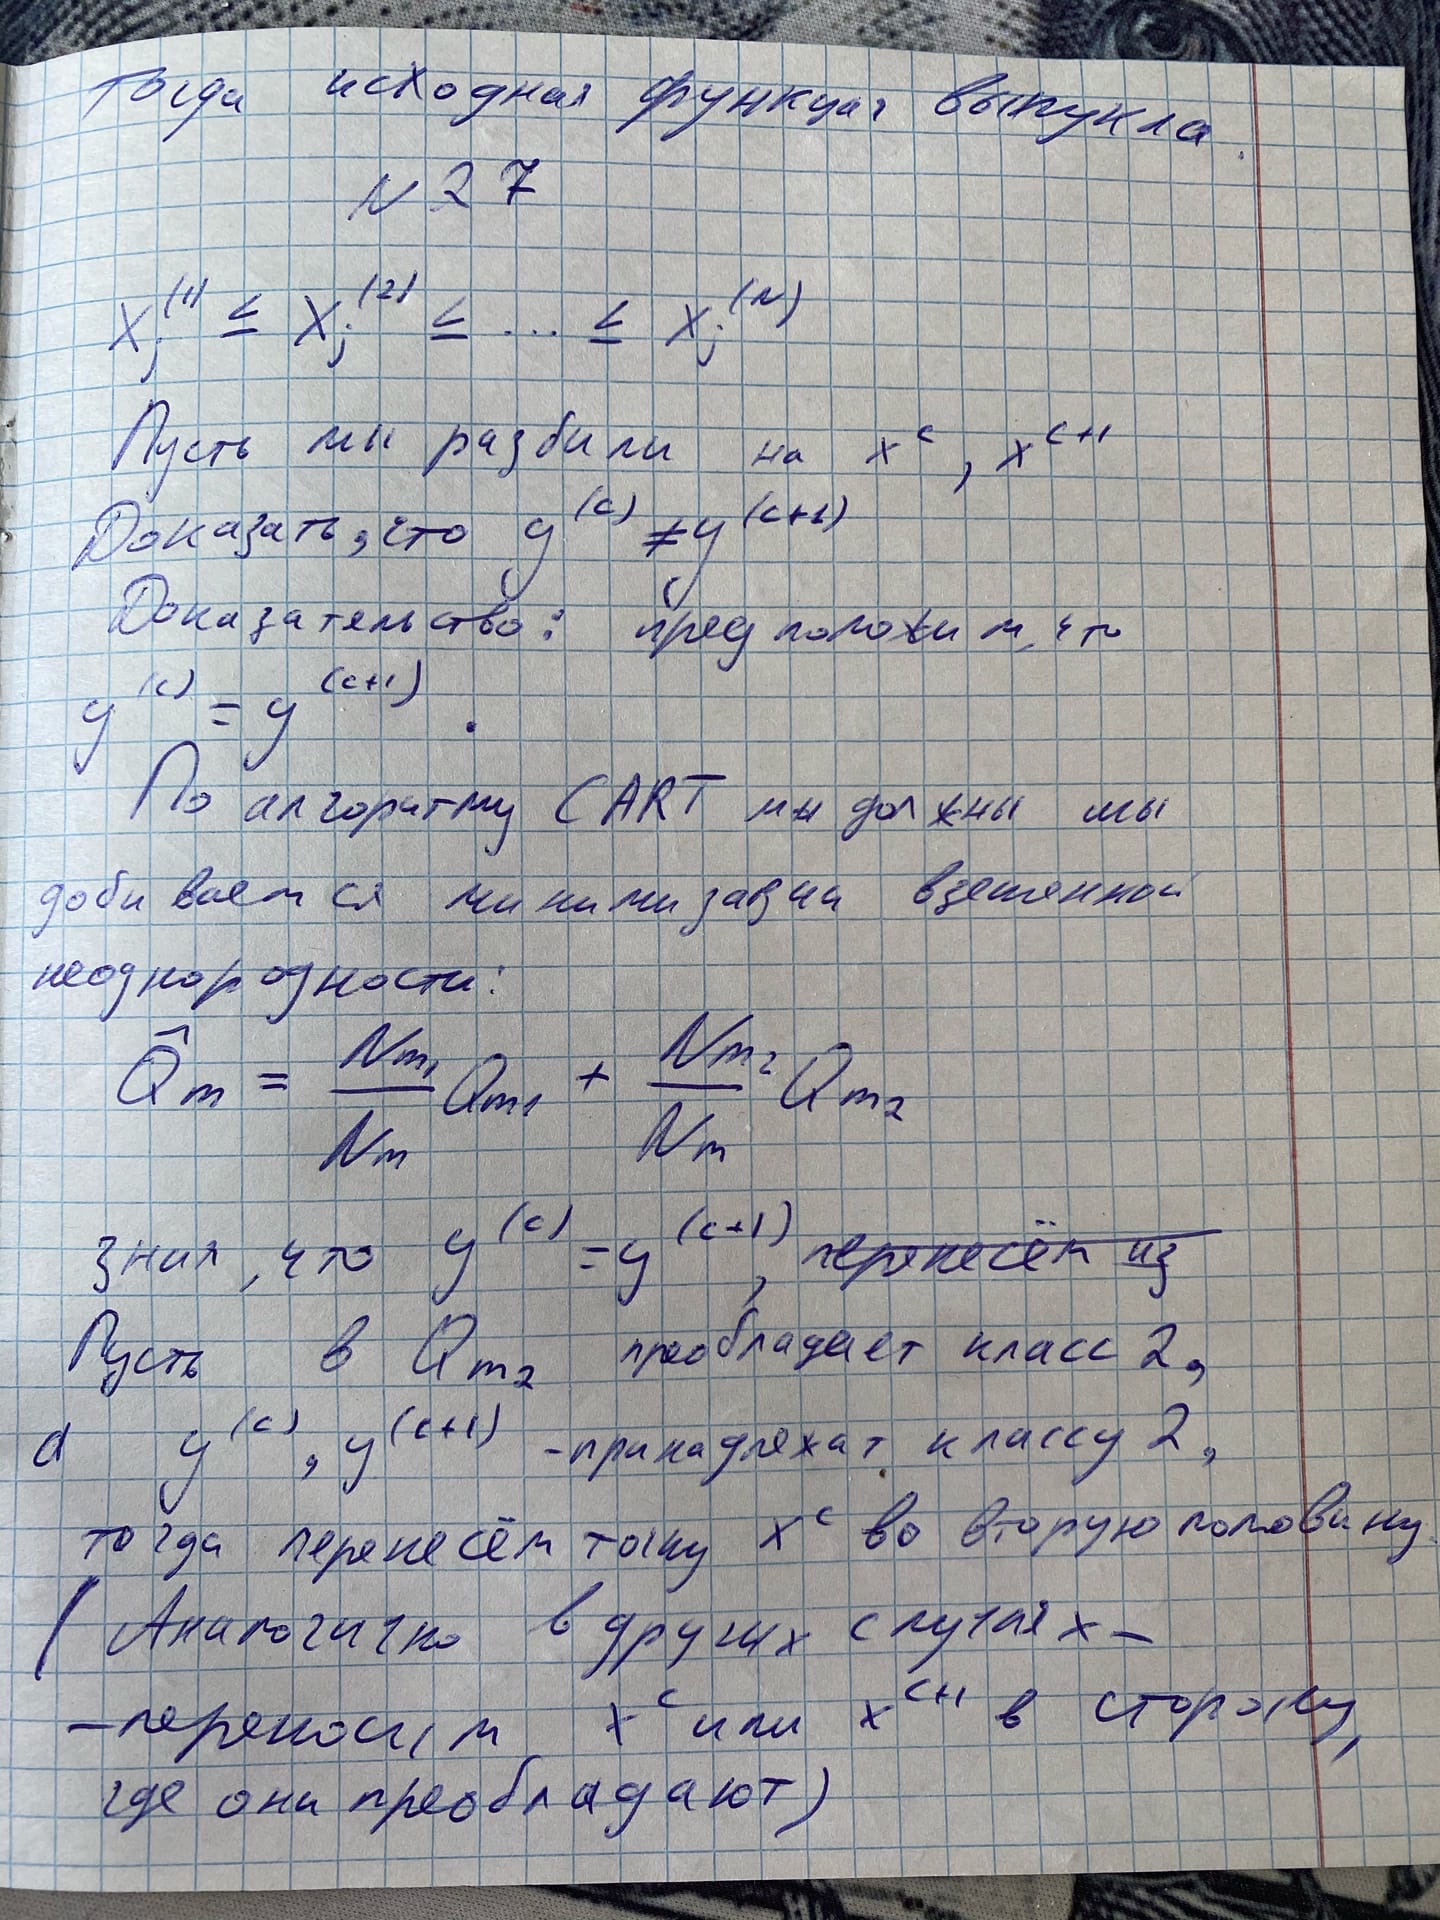 Тогда исходная функция выпукла.
N 27
X_j^{(1)} ≤ X_j^{(2)} ≤ ... ≤ X_j^{(N)}
Пусть мы разбили на x^c, x^{c+1}
Доказать, что y^{(c)} ≠ y^{(c+1)}
Доказательство: предположим, что
y^{(c)} = y^{(c+1)}.
По алгоритму CART мы должны мы
добиваемся минимизации взешенной
неоднородности:
Q̂_m = N_{m1}/N_m Q_{m1} + N_{m2}/N_m Q_{m2}
Зная, что y^{(c)} = y^{(c+1)}, перенесём из
Пусть в Q_{m2} преобладает класс 2,
а y^{(c)}, y^{(c+1)} - принадлежат классу 2,
тогда перенесём точку x^c во вторую половину.
(Аналогично в других случаях -
- переносим x^c или x^{c+1} в сторону,
где они преобладают)